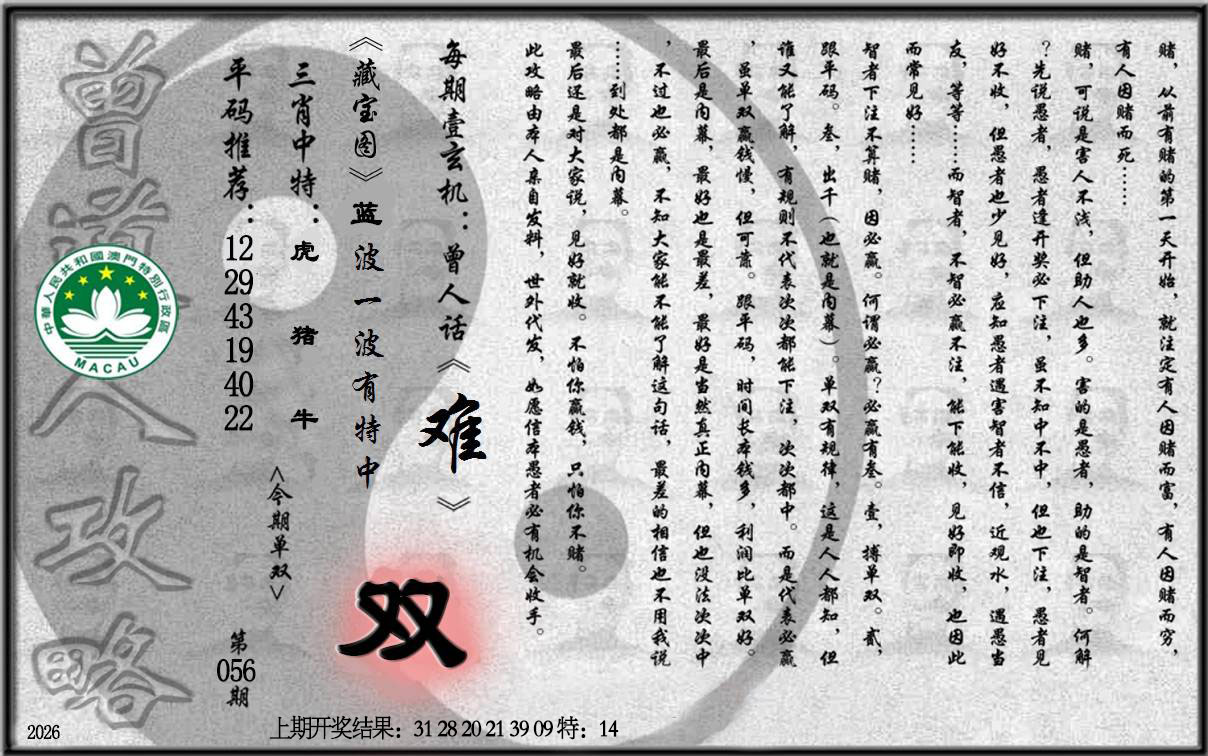 赌，从前有赌的第一天开始，就注定有人因赌而富，有人因赌而穷，
有人因赌而死……
赌，可说是害人不浅，但助人也多。害的是愚者，助的是智者。何解
？先说愚者，愚者逢开奖必下注，虽不知中不中，但也下注，愚者见
好不收，但愚者也少见好，应知愚者遇害智者不信，近观水，遇愚当
友，等等……而智者，不智必赢不注，能下能收，见好即收，也因此
而常见好……
智者下注不算赌，因必赢。何谓必赢？必赢有叁。壹，搏单双。贰，
跟平码。叁，出千（也就是内幕）。单双有规律，这是人人都知，但
谁又能了解，有规则不代表次次都能下注，次次都中。而是代表必赢
，虽单双赢钱慢，但可靠。跟平码，时间长本钱多，利润比单双好。
最后是内幕，最好也是最差，最好是当然真正内幕，但也没法次次中
，不过也必赢，不知大家能不能了解这句话，最差的相信也不用我说
……到处都是内幕。
最后还是对大家说，见好就收。不怕你赢钱，只怕你不赌。
此攻略由本人亲自发料，世外代发，如愿信本愚者必有机会收手。
每期壹玄机：曾人话《难》
《藏宝图》蓝波一波有特中
双
三肖中特：虎 猪 牛
<今期单双>
平码推荐：12 29 43 19 40 22
第056期
曾道人攻略
中華人民共和國澳門特別行政區
MACAU
2026
上期开奖结果：31 28 20 21 39 09 特：14